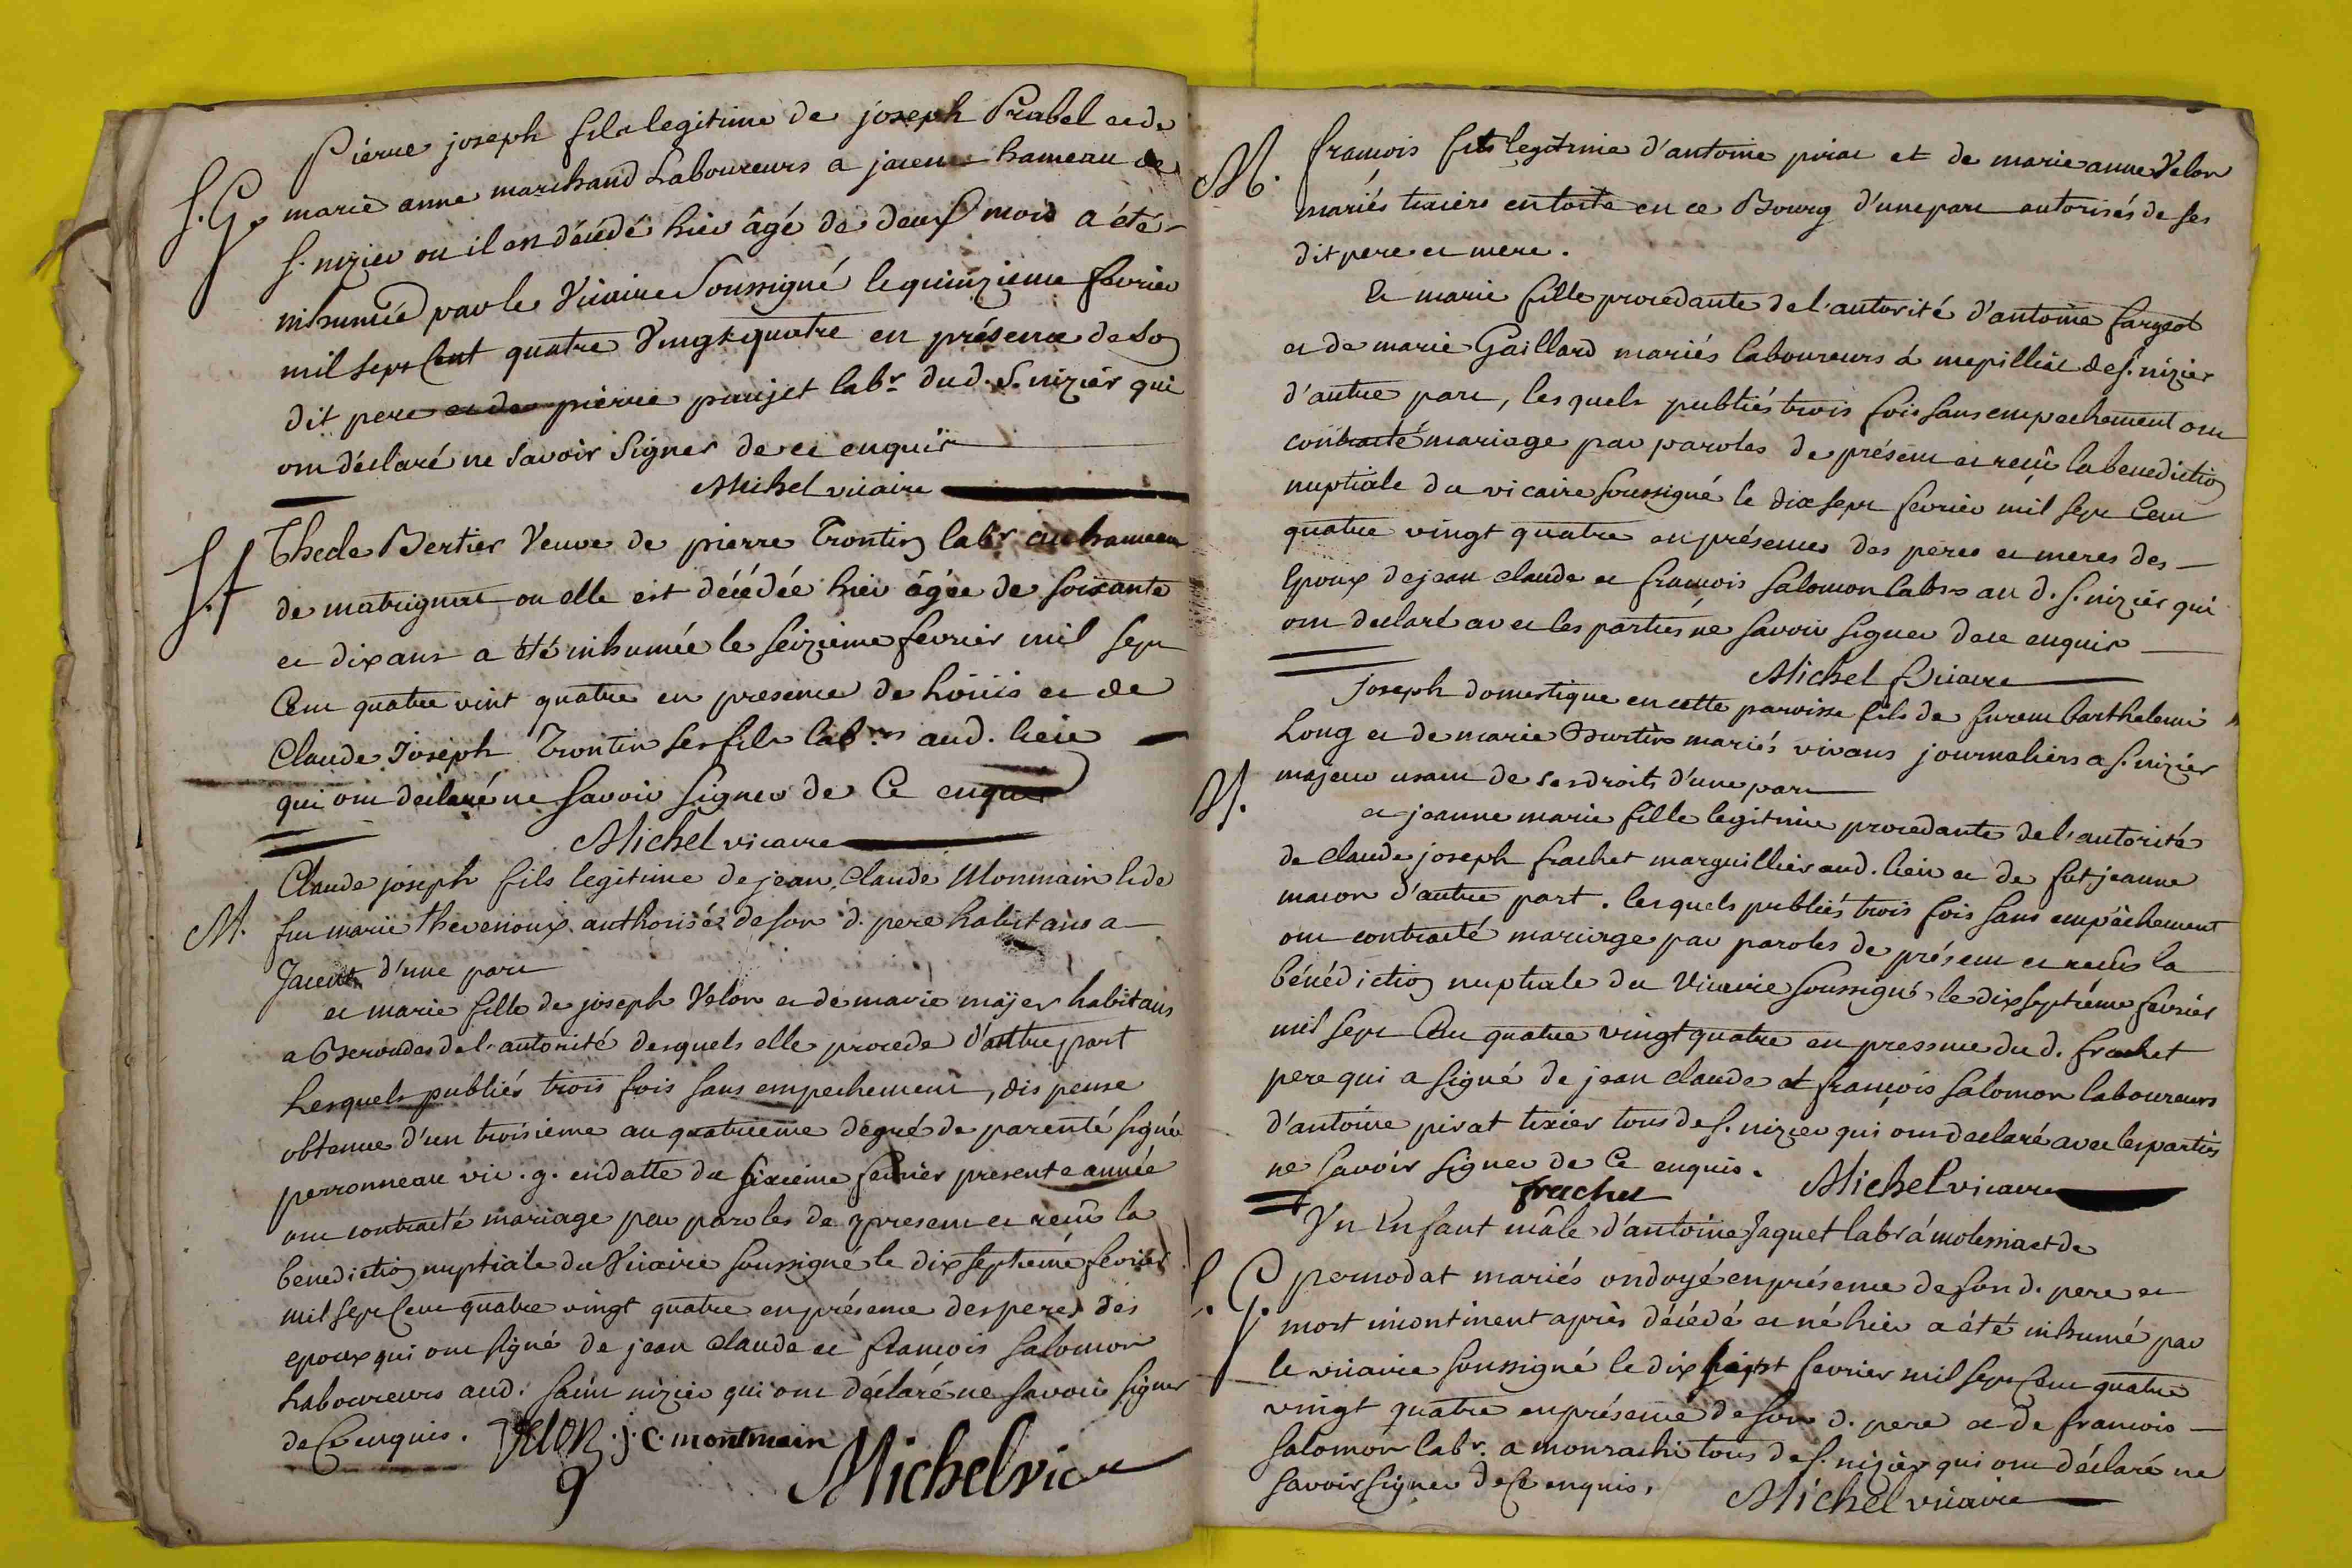 Pierre joseph fils legitime de joseph Prabel et de
S.G. marie anne marchand Laboureurs a jacent hameau de
S. nizier ou il est décédé hier âgé de deux mois a été
inhumé par le Vicaire Soussigné le quinzieme fevrier
mil sept Cent quatre Vingt quatre en présence de son
dit pere et de pierre paujet labr. dud. S. nizier qui
ont déclaré ne Savoir Signer de ce enquis
Michel vicaire
S.f Thecle Bertier Veuve de pierre Trontin labr au hameau
de matrignat ou elle est décédée hier âgée de soixante
et dix ans a été inhumée le Seizieme fevrier mil sept
Cent quatre vint quatre en presence de Loüis et de
Claude Joseph Trontin ses fils labrs aud. lieu
qui ont declaré ne Savoir Signer de Ce enquis
Michel vicaire
Claude joseph fils legitime de jean Claude Monmain et de
M. fut marie thevenoux authorisé de son d. pere habitans a
Jacent d'une part
et marie fille de joseph Velon et de marie mayer habitans
a Beroudes de l'autorité desquels elle procede d'autre part
Lesquels publiés trois fois sans empechement, dispense
obtenue d'un troisieme au quatrieme degré de parenté signée
perronneau vic. g. en datte du sixieme fevrier presente année
ont contracté mariage par paroles de present et reçû la
benediction nuptiale du Vicaire soussigné le dix septieme fevrier
mil sept Cent quatre vingt quatre en présence des peres des
epoux qui ont signé de jean claude et francois Salomon
Laboureurs aud. Saint nizier qui ont déclaré ne savoir signer
de Ce enquis. VELON. j. c. montmain
Michel vic
M. francois fils legitime d'antoine pirat et de marie anne Velon
mariés tixiers en toile en ce Bourg d'une part autorisés de ses
dit pere et mere.
Et marie fille procedante de l'autorité d'antoine fargeot
et de marie Gaillard mariés laboureurs à mepilliat de S. nizier
d'autre part, lesquels publiés trois fois sans empechement ont
contracté mariage par paroles de présent et reçû la benediction
nuptiale du vicaire soussigné le dix sept fevrier mil sept Cent
quatre vingt quatre en présence des peres et meres des
Epoux de jean claude et francois Salomon labrs au d. S. nizier qui
ont declaré avec les parties ne savoir signer de ce enquis
Michel Vicaire
Joseph domestique en cette paroisse fils de furent barthelemi
Long et de marie Burtin mariés vivans journaliers a S. nizier
M. majeur usant de ses droits d'une part
et jeanne marie fille legitime procedante de l'autorité
de claude joseph frachet marguillier aud. lieu et de fut jeanne
maron d'autre part. lesquels publiés trois fois sans empêchement
ont contracté mariage par paroles de présent et reçûs la
bénédiction nuptiale du Vicaire soussigné le dix septième fevrier
mil sept Cent quatre vingt quatre en presence dud. frachet
pere qui a signé de jean claude et françois Salomon laboureurs
d'antoine pirat tixier tous de S. nizier qui ont declaré avec les parties
ne savoir signer de Ce enquis. Michel vicaire
frachet
Un Enfant mâle d'antoine Jaquet labr à molissiat et de
S.G. pernodat mariés ondoyé en présence de son d. pere et
mort incontinent après décédé et né hier a été inhumé par
le vicaire soussigné le dix huit fevrier mil sept Cent quatre
vingt quatre en présence de son d. pere et de francois
Salomon labr. a monrachi tous de S. nizier qui ont déclaré ne
savoir signer de Ce enquis,
Michel vicaire